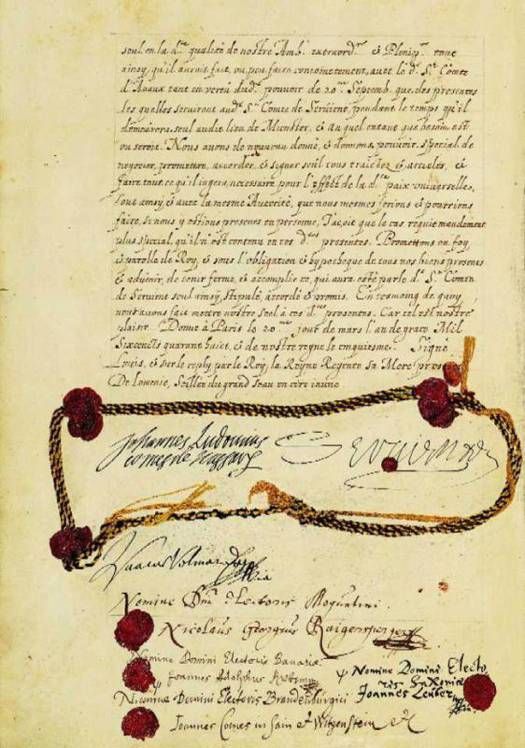 seul en la d.te qualité de nostre Amb.r extraord.re & Plenip.re tout
ainsy, qu'il auroit fait, ou peu faire conjointement, avec le d. S.r Comte
d'Avaux tant en vertu dud. pouvoir du 20.me Septemb. que des presentes
les quelles serviront aud. S.r Comte de Servient, pendant le temps qu'il
demeurera, seul audit lieu de Munster, & au quel entant que besoin est
ou seroit. Nous avons de nouveau donné, & donnons, pouvoir, special de
negocier, promettre, accorder & signer seul tous traictez & articles, &
faire tout ce qu'il jugera necessaire pour l'effect de la d.te paix universelle,
Tout ainsy, & avec la mesme Autorité, que nous mesmes ferions & pourrions
faire, si nous y estions presens en personne, Jaçoit que le cas requit mandement
plus special, qu'il n'est contenu en ces d.tes presentes. Promettons en foy,
& parolle de Roy, & sous l'obligation & hypotheque de tous nos biens presens
& advenir, de tenir ferme, & accomplir ce, qui aura esté par le d.t S.r Comte
de Servient seul ainsy, stipulé, accordé & promis. En tesmoing de quoy
nous avons fait mettre nostre seel à ces d.tes presentes. Car tel est nostre
plaisir. Donné à Paris le 20.me jour de mars l'an de grace Mil
Sixcents quarante huict, & de nostre regne le cinquiesme. Signé
Louis, & sur le reply par le Roy, la Royne Regente sa Mere presente
De Lomenie, Seillée du grand seau en cire jaune
Johannes Ludovicus
comes de Nassau
Servient
Isaacus Volmar
Nomine Dni Electoris Moguntini.
Nicolaus Georgius Raigersperger
Nomine Domini Electoris Bavariae
Joannes Adolphus Krebs
Nomine Domini Electoris Saxoniae
Joannes Leuber
Nomine Domini Electoris Brandenburgici
Joannes Comes in Sain et Witgenstein